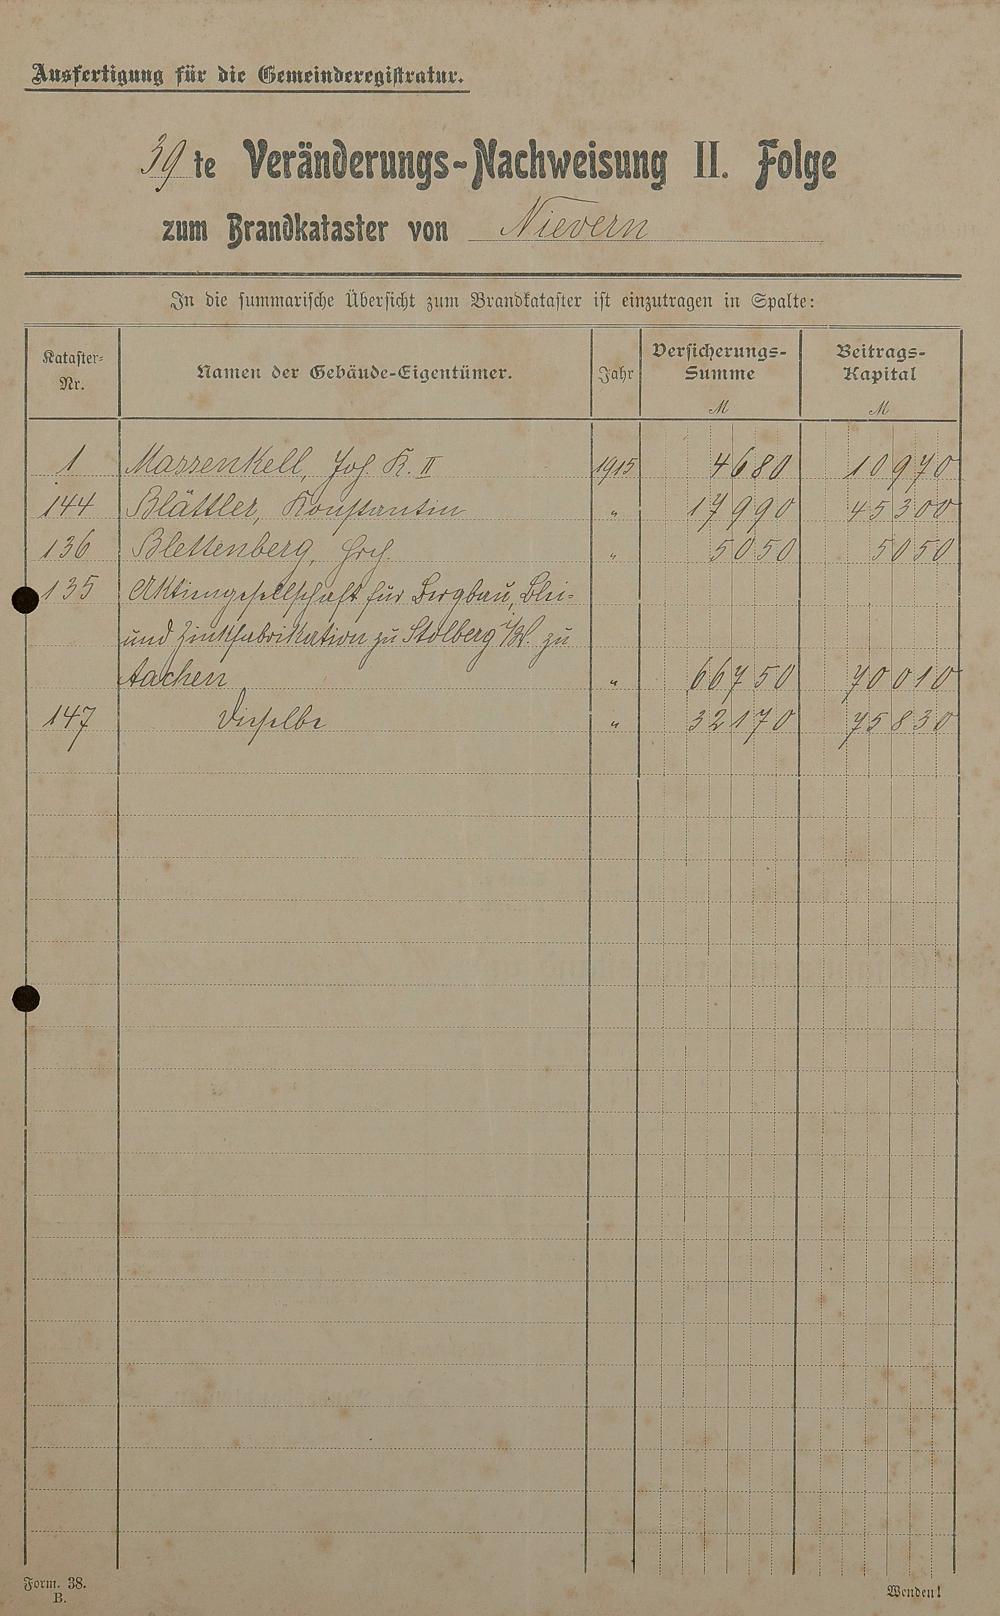 Ausfertigung für die Gemeinderegistratur.
39te Veränderungs-Nachweisung II. Folge
zum Brandkataster von Nievern
In die summarische Übersicht zum Brandkataster ist einzutragen in Spalte:
Kataster-Nr. Namen der Gebäude-Eigentümer. Jahr Versicherungs-Summe M Beitrags-Kapital M
1 Massenkell, Jos. K. II 1915 4680 10970
144 Blättler, Konstantin " 17990 45300
136 Blettenberg, " 5050 5050
135 Aktiengesellschaft für Bergbau, Blei-
und Zinkfabrikation zu Stolberg i/W. zu
Aachen " 66750 70010
147 Dieselbe " 32170 75830
Form. 38.
B.
Wenden!